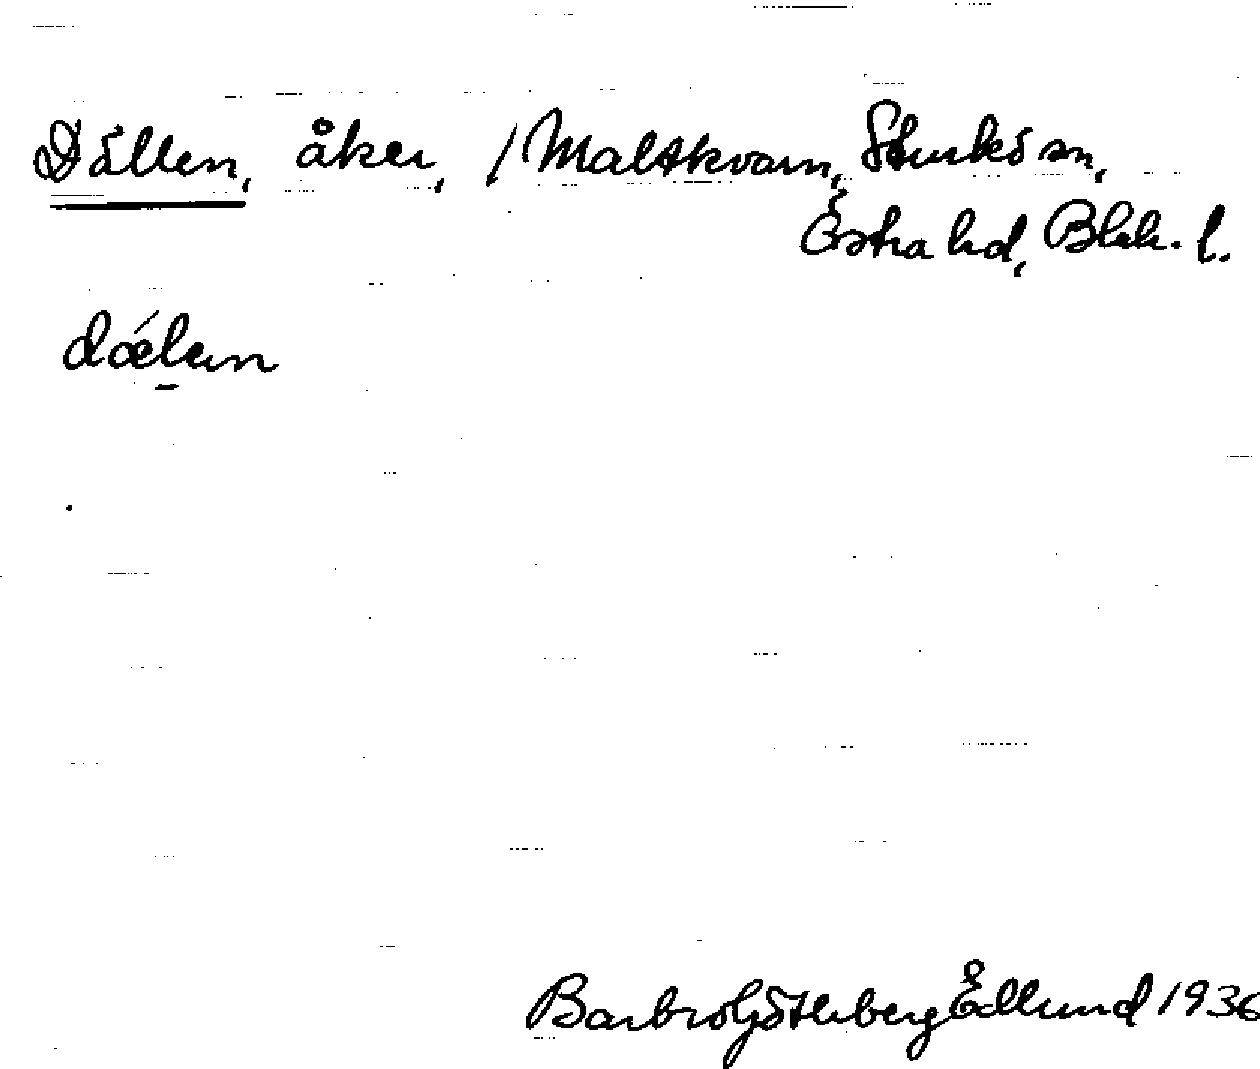 Dällen, åker, / Maltkvarn, Sturkö sn,
Östra hd, Blek. l.
dǽlen
Barbro Götleberg Ädlund 1936